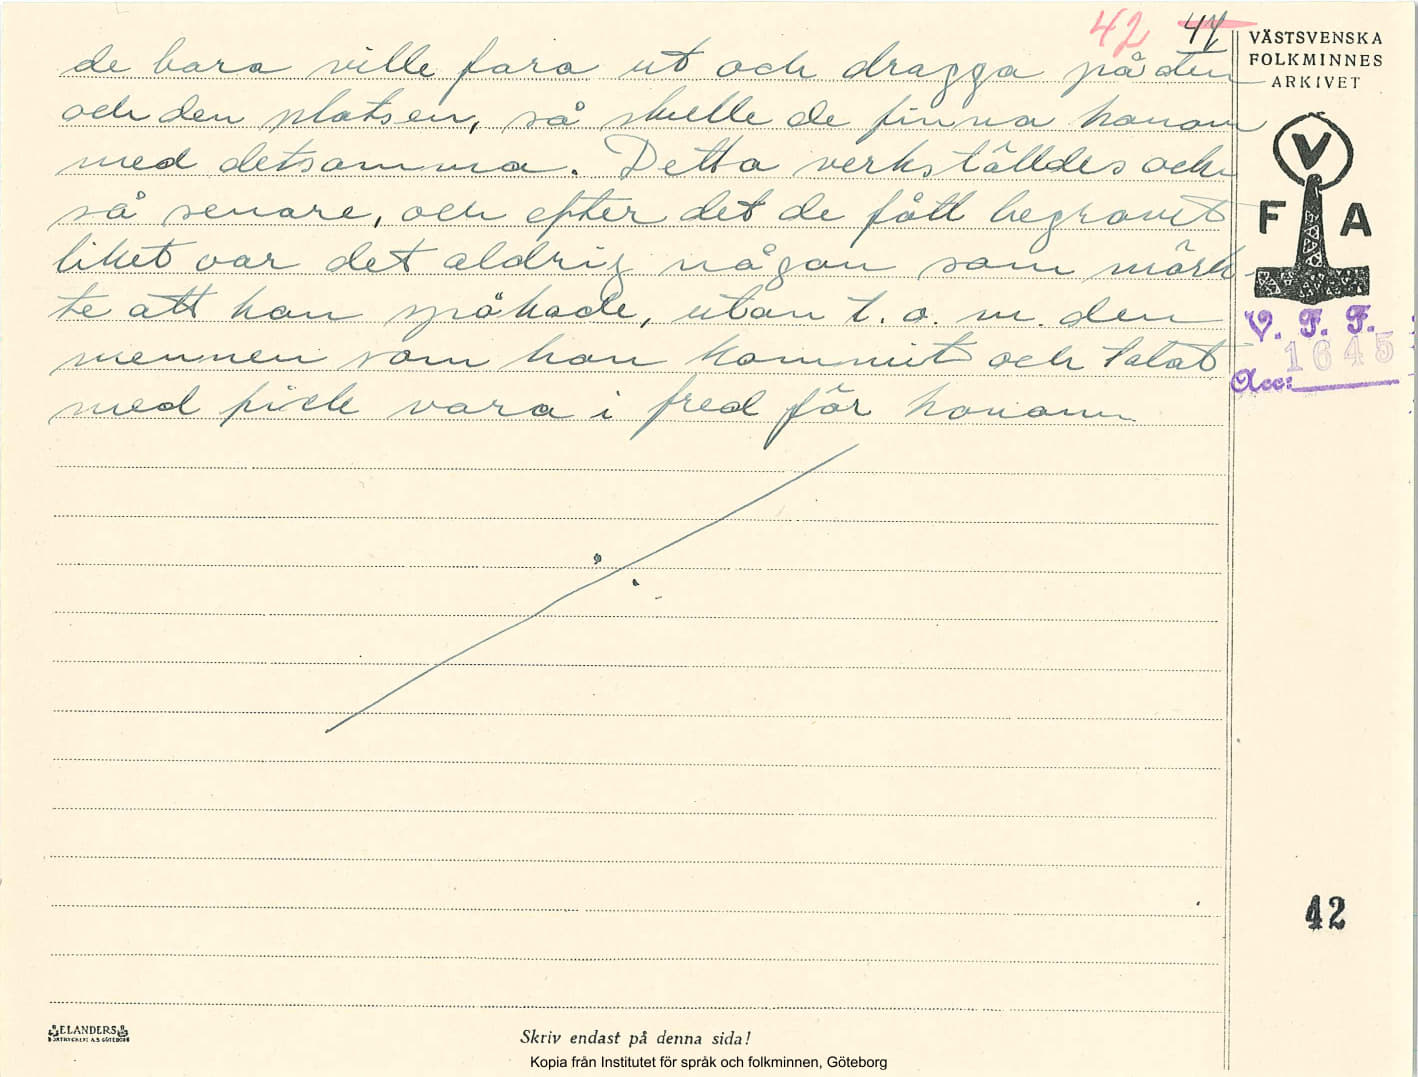 42 44
VÄSTSVENSKA
FOLKMINNES
ARKIVET
de bara ville fara ut och dragga på den
och den platsen, så skulle de finna honom
med detsamma. Detta verkställdes ock
så senare, och efter det de fått begravt
liket var det aldrig någon som märk-
te att han spökade, utan t.o.m. den
mannen som han kommit och talat
med fick vara i fred för honom
V
F A
V. F. F.
1645
Acc:
42
ELANDERS
BOKTRYCKERI A.B. GÖTEBORG
Skriv endast på denna sida!
Kopia från Institutet för språk och folkminnen, Göteborg